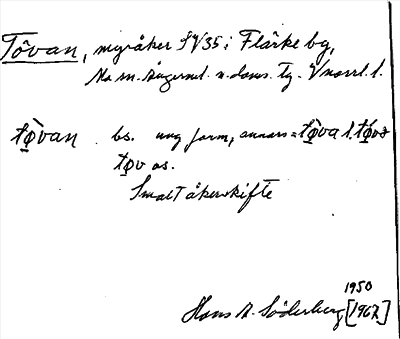 Tôvan, myråker SV35 i Flärke by,
Na sn. Ångerml. n. doms. Tg. Vnorrl. l.
tø̀van bs. ung form, annars = tø̀va l. tǿva
tøv os.
Smalt åkerskifte
1950
Hans A. Söderberg [1967]